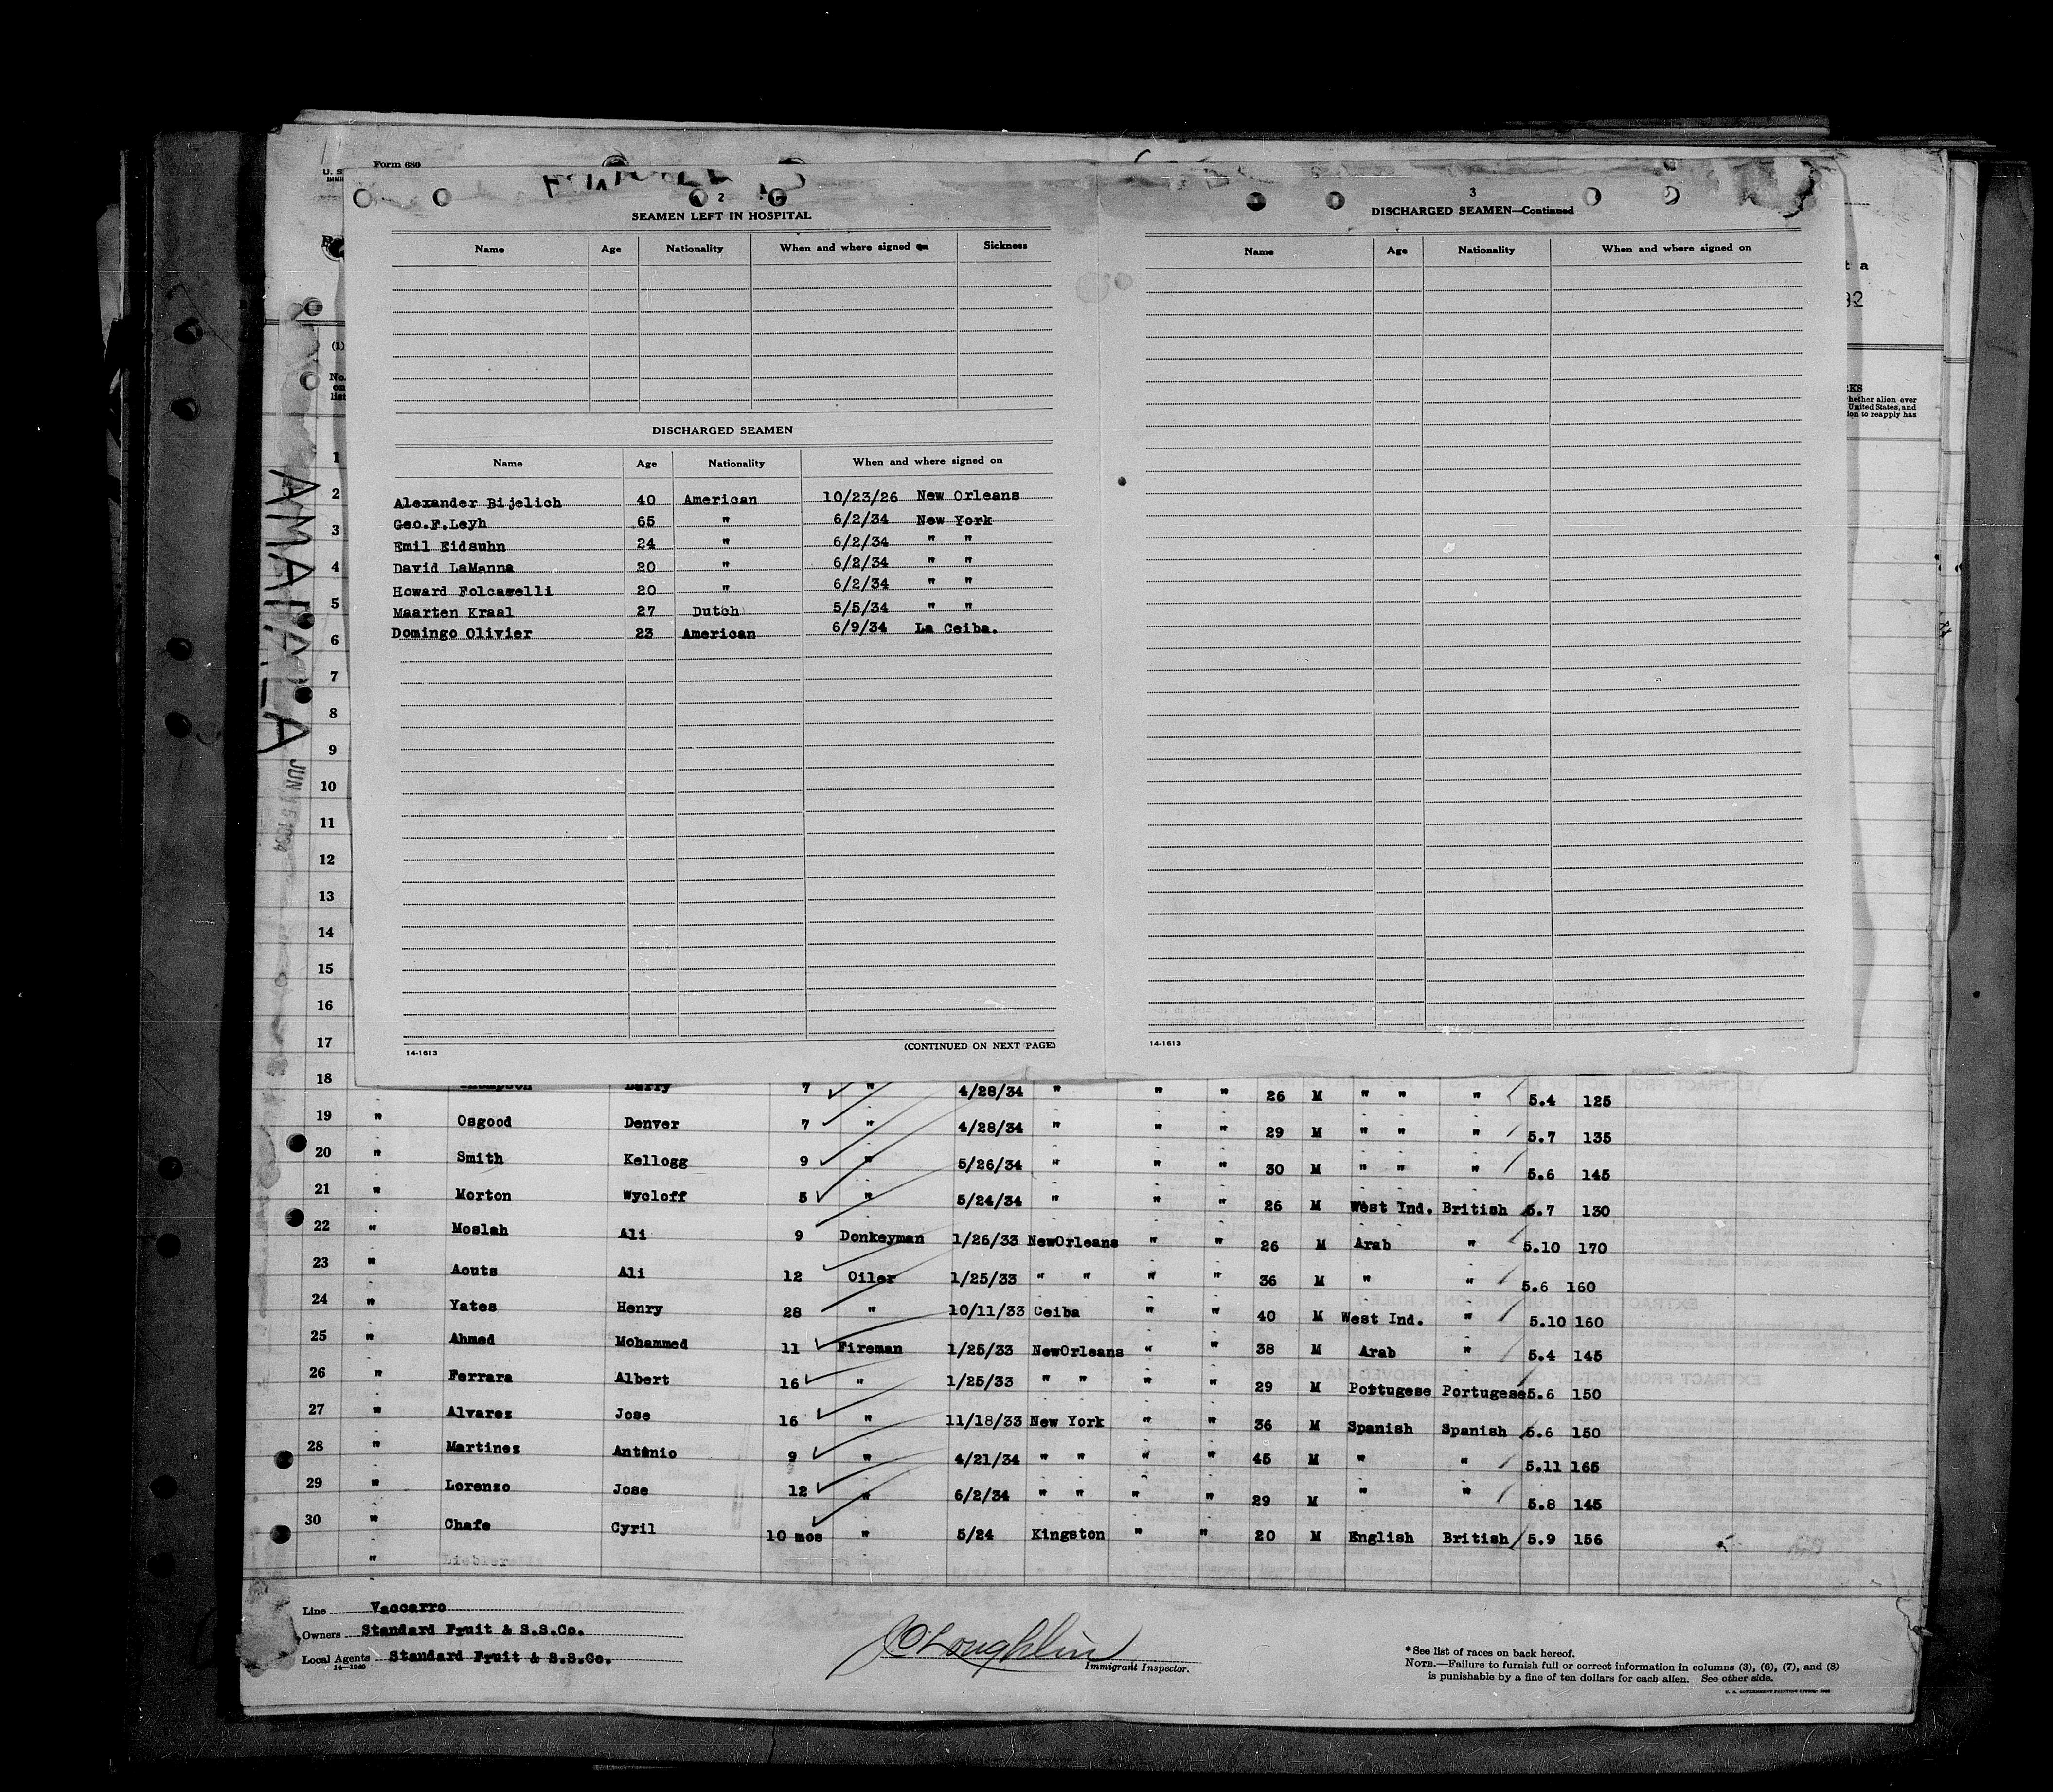 Form 680
2
SEAMEN LEFT IN HOSPITAL
Name Age Nationality When and where signed on Sickness
DISCHARGED SEAMEN
Name Age Nationality When and where signed on
Alexander Bijelich 40 American 10/23/26 New Orleans
Geo.F.Leyh 65 " 6/2/34 New York
Emil Eidsuhn 24 " 6/2/34 " "
David LaManna 20 " 6/2/34 " "
Howard Folcarelli 20 " 6/2/34 " "
Maarten Kraal 27 Dutch 5/5/34 " "
Domingo Olivier 23 American 6/9/34 La Ceiba.
14-1613 (CONTINUED ON NEXT PAGE)
3
DISCHARGED SEAMEN—Continued
Name Age Nationality When and where signed on
14-1613
t a
92
RKS
hether alien ever
United States, and
ion to reapply has
(1)
No.
on
list
AMAPALA
JUN 15 1934
1
2
3
4
5
6
7
8
9
10
11
12
13
14
15
16
17
18 Thompson Harry 7 " 4/28/34 " " " 26 M " " " 5.4 125
19 " Osgood Denver 7 " 4/28/34 " " " 29 M " " " 5.7 135
20 " Smith Kellogg 9 " 5/26/34 " " " 30 M " " " 5.6 145
21 " Morton Wycloff 5 " 5/24/34 " " " 26 M West Ind. British 5.7 130
22 " Moslah Ali 9 Donkeyman 1/26/33 NewOrleans " " 26 M Arab " 5.10 170
23 " Aouts Ali 12 Oiler 1/25/33 " " " " 36 M " " 5.6 160
24 " Yates Henry 28 " 10/11/33 Ceiba " " 40 M West Ind. " 5.10 160
25 " Ahmed Mohammed 11 Fireman 1/25/33 NewOrleans " " 38 M Arab " 5.4 145
26 " Ferrara Albert 16 " 1/25/33 " " " " 29 M Portugese Portugese 5.6 150
27 " Alvarez Jose 16 " 11/18/33 New York " " 36 M Spanish Spanish 5.6 150
28 " Martinez Antonio 9 " 4/21/34 " " " " 45 M " " 5.11 165
29 " Lorenzo Jose 12 " 6/2/34 " " " " 29 M " " 5.8 145
30 " Chafe Cyril 10 mos " 5/24 Kingston " " 20 M English British 5.9 156
"
Line Vaccarro
Owners Standard Fruit & S.S.Co.
Local Agents Standard Fruit & S.S.Co.
14—1240
O'Loughlin
Immigrant Inspector.
*See list of races on back hereof.
NOTE.—Failure to furnish full or correct information in columns (3), (6), (7), and (8)
is punishable by a fine of ten dollars for each alien. See other side.
U. S. GOVERNMENT PRINTING OFFICE